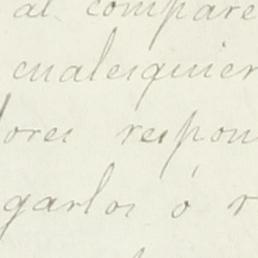 al compare
cualesquier
dores respon
garlos ó r